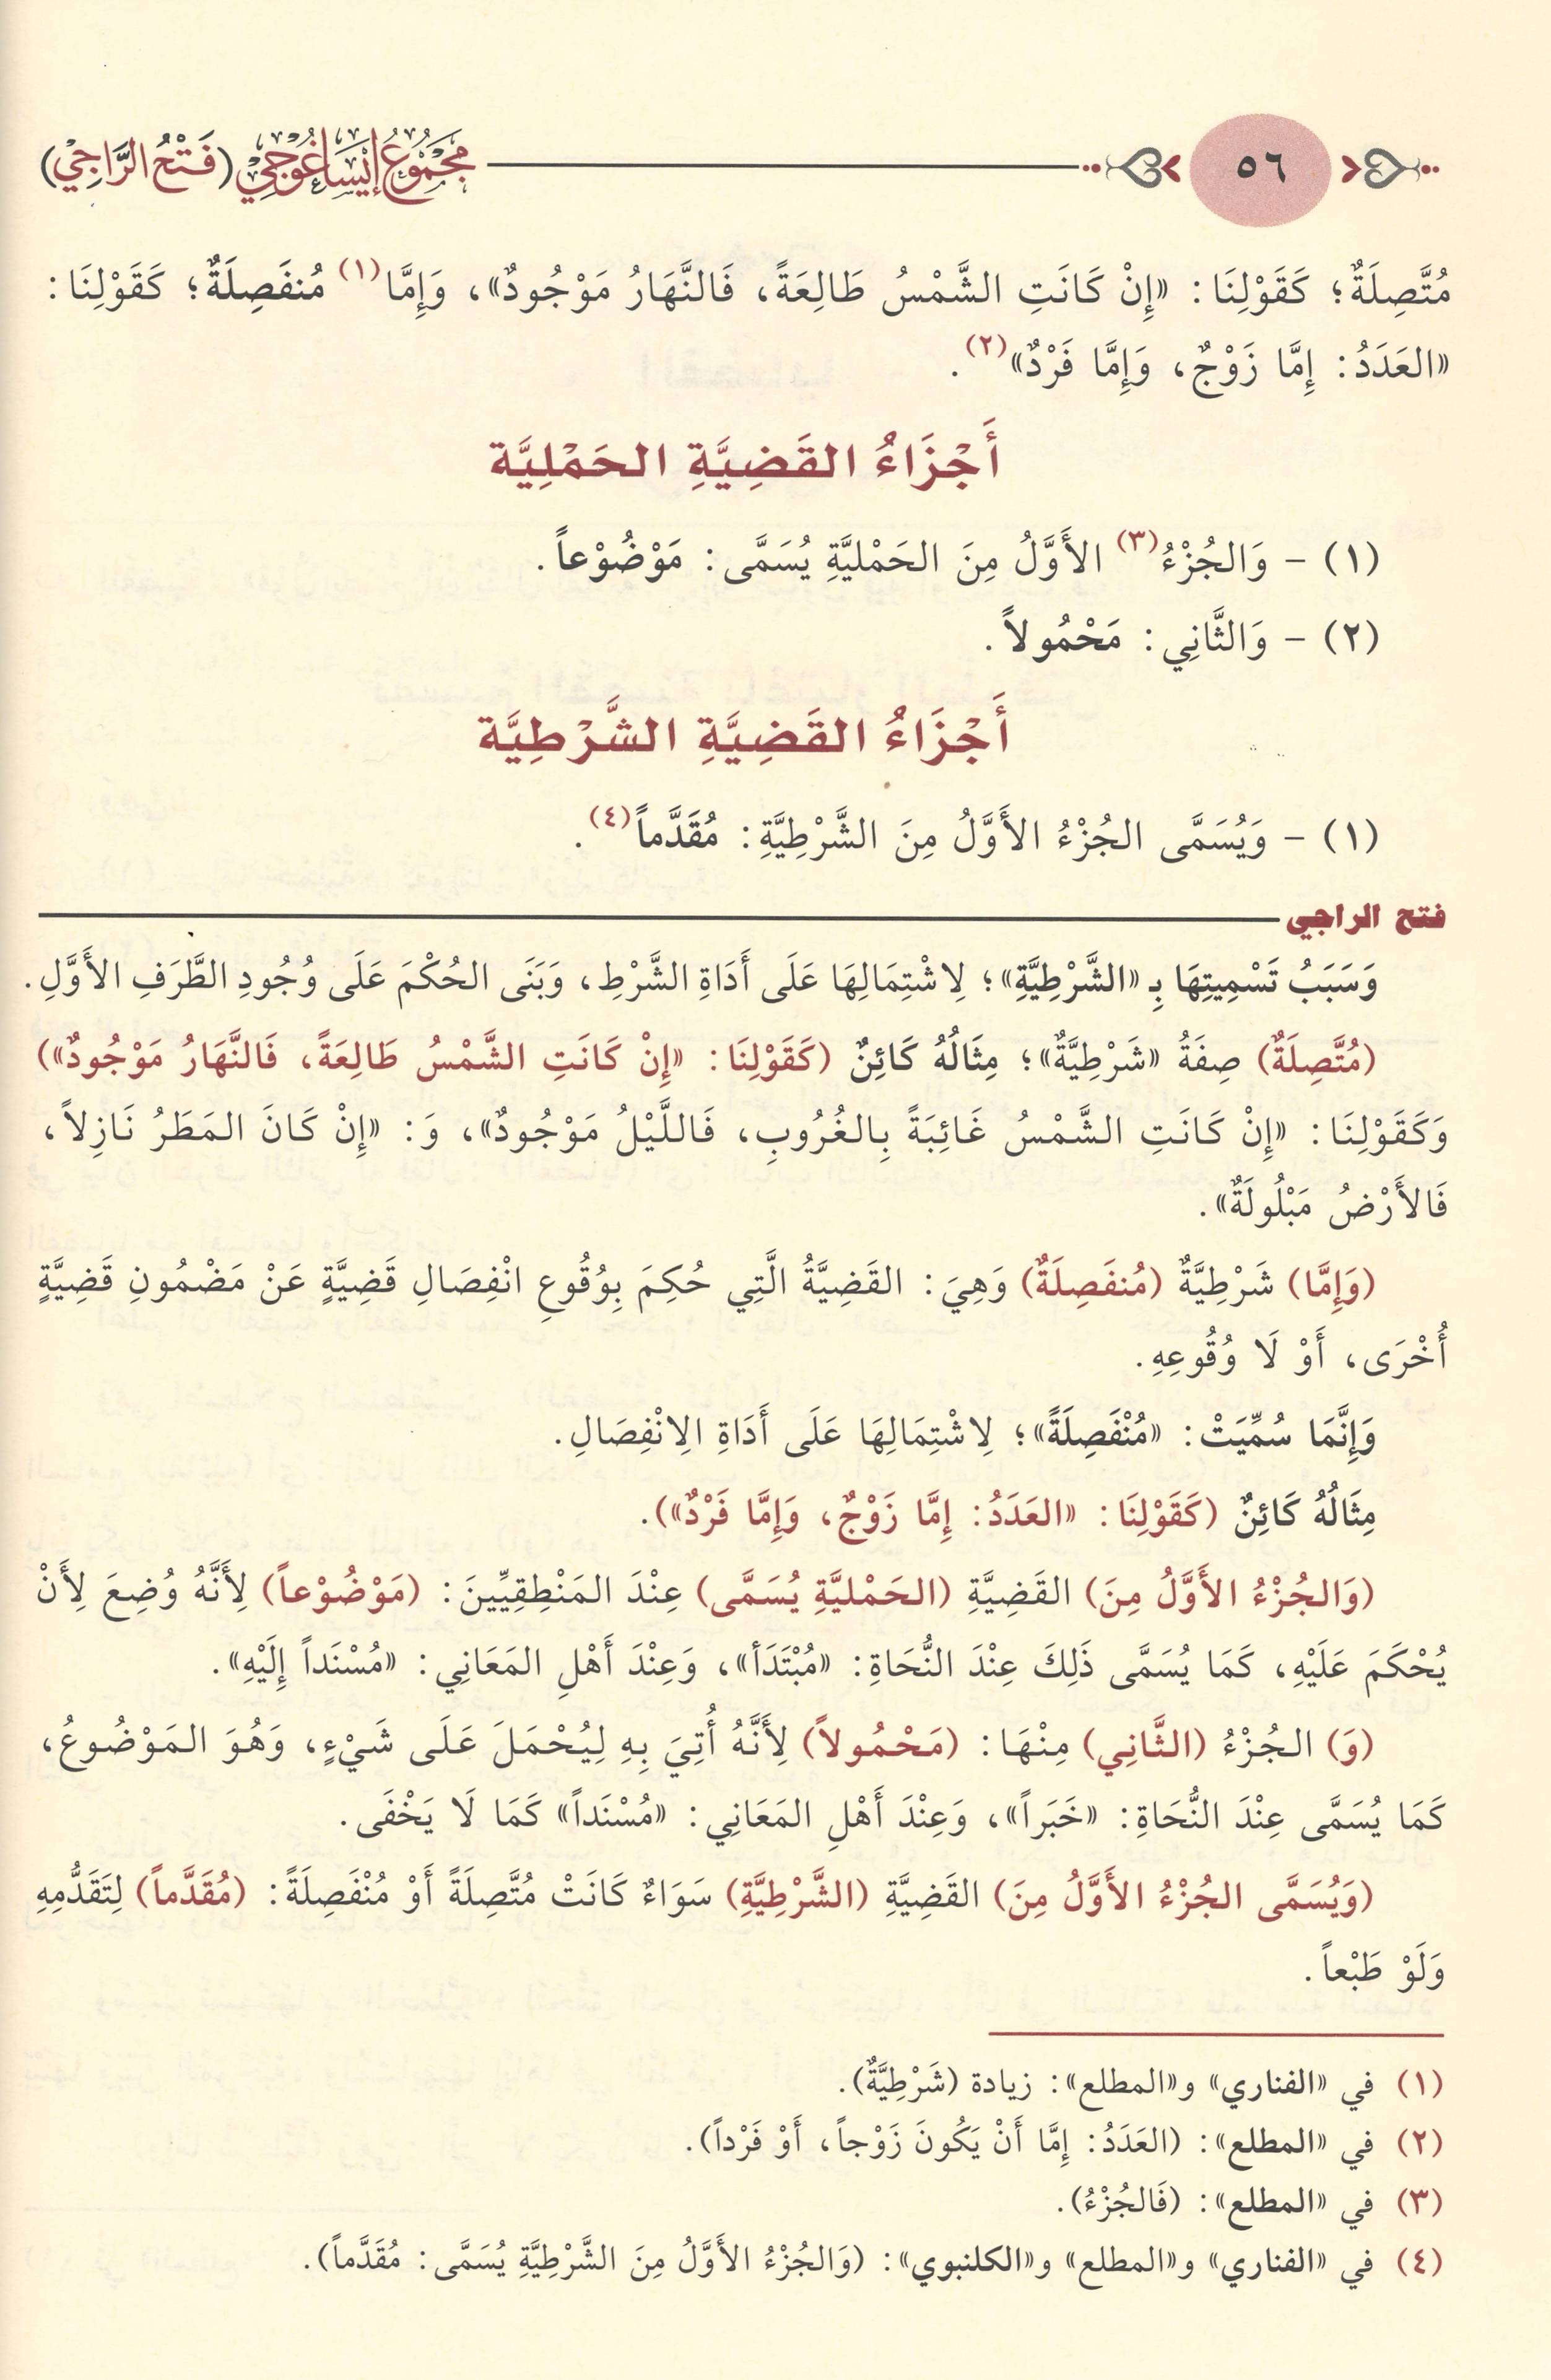 ٥٦
مَجْمُوعُ إِيسَاغُوجِي (فَتْحُ الرَّاجِيْ)
مُتَّصِلَةٌ؛ كَقَوْلِنَا: «إِنْ كَانَتِ الشَّمْسُ طَالِعَةً، فَالنَّهَارُ مَوْجُودٌ»، وَإِمَّا(١) مُنفَصِلَةٌ؛ كَقَوْلِنَا:
«العَدَدُ: إِمَّا زَوْجٌ، وَإِمَّا فَرْدٌ»(٢).
أَجْزَاءُ القَضِيَّةِ الحَمْلِيَّة
(١) - وَالجُزْءُ(٣) الأَوَّلُ مِنَ الحَمْليَّةِ يُسَمَّى: مَوْضُوْعاً.
(٢) - وَالثَّانِي: مَحْمُولاً.
أَجْزَاءُ القَضِيَّةِ الشَّرْطِيَّة
(١) - وَيُسَمَّى الجُزْءُ الأَوَّلُ مِنَ الشَّرْطِيَّةِ: مُقَدَّماً(٤).
فتح الراجي
وَسَبَبُ تَسْمِيتِهَا بِـ «الشَّرْطِيَّةِ»؛ لِاشْتِمَالِهَا عَلَى أَدَاةِ الشَّرْطِ، وَبَنَى الحُكْمَ عَلَى وُجُودِ الطَّرَفِ الأَوَّلِ.
(مُتَّصِلَةٌ) صِفَةُ «شَرْطِيَّةٌ»؛ مِثَالُهُ كَائِنٌ (كَقَوْلِنَا: «إِنْ كَانَتِ الشَّمْسُ طَالِعَةً، فَالنَّهَارُ مَوْجُودٌ»)
وَكَقَوْلِنَا: «إِنْ كَانَتِ الشَّمْسُ غَائِبَةً بِالغُرُوبِ، فَاللَّيْلُ مَوْجُودٌ»، وَ: «إِنْ كَانَ المَطَرُ نَازِلاً،
فَالأَرْضُ مَبْلُولَةٌ».
(وَإِمَّا) شَرْطِيَّةٌ (مُنفَصِلَةٌ) وَهِيَ: القَضِيَّةُ الَّتِي حُكِمَ بِوُقُوعِ انْفِصَالِ قَضِيَّةٍ عَنْ مَضْمُونِ قَضِيَّةٍ
أُخْرَى، أَوْ لَا وُقُوعِهِ.
وَإِنَّمَا سُمِّيَتْ: «مُنْفَصِلَةً»؛ لِاشْتِمَالِهَا عَلَى أَدَاةِ الِانْفِصَالِ.
مِثَالُهُ كَائِنٌ (كَقَوْلِنَا: «العَدَدُ: إِمَّا زَوْجٌ، وَإِمَّا فَرْدٌ»).
(وَالجُزْءُ الأَوَّلُ مِنَ) القَضِيَّةِ (الحَمْليَّةِ يُسَمَّى) عِنْدَ المَنْطِقِيِّينَ: (مَوْضُوْعاً) لِأَنَّهُ وُضِعَ لِأَنْ
يُحْكَمَ عَلَيْهِ، كَمَا يُسَمَّى ذَلِكَ عِنْدَ النُّحَاةِ: «مُبْتَدَأ»، وَعِنْدَ أَهْلِ المَعَانِي: «مُسْنَداً إِلَيْهِ».
(وَ) الجُزْءُ (الثَّانِي) مِنْهَا: (مَحْمُولاً) لِأَنَّهُ أُتِيَ بِهِ لِيُحْمَلَ عَلَى شَيْءٍ، وَهُوَ المَوْضُوعُ،
كَمَا يُسَمَّى عِنْدَ النُّحَاةِ: «خَبَراً»، وَعِنْدَ أَهْلِ المَعَانِي: «مُسْنَداً» كَمَا لَا يَخْفَى.
(وَيُسَمَّى الجُزْءُ الأَوَّلُ مِنَ) القَضِيَّةِ (الشَّرْطِيَّةِ) سَوَاءٌ كَانَتْ مُتَّصِلَةً أَوْ مُنْفَصِلَةً: (مُقَدَّماً) لِتَقَدُّمِهِ
وَلَوْ طَبْعاً.
(١) في «الفناري» و«المطلع»: زيادة (شَرْطِيَّةٌ).
(٢) في «المطلع»: (العَدَدُ: إِمَّا أَنْ يَكُونَ زَوْجاً، أَوْ فَرْداً).
(٣) في «المطلع»: (فَالجُزْءُ).
(٤) في «الفناري» و«المطلع» و«الكلنبوي»: (وَالجُزْءُ الأَوَّلُ مِنَ الشَّرْطِيَّةِ يُسَمَّى: مُقَدَّماً).